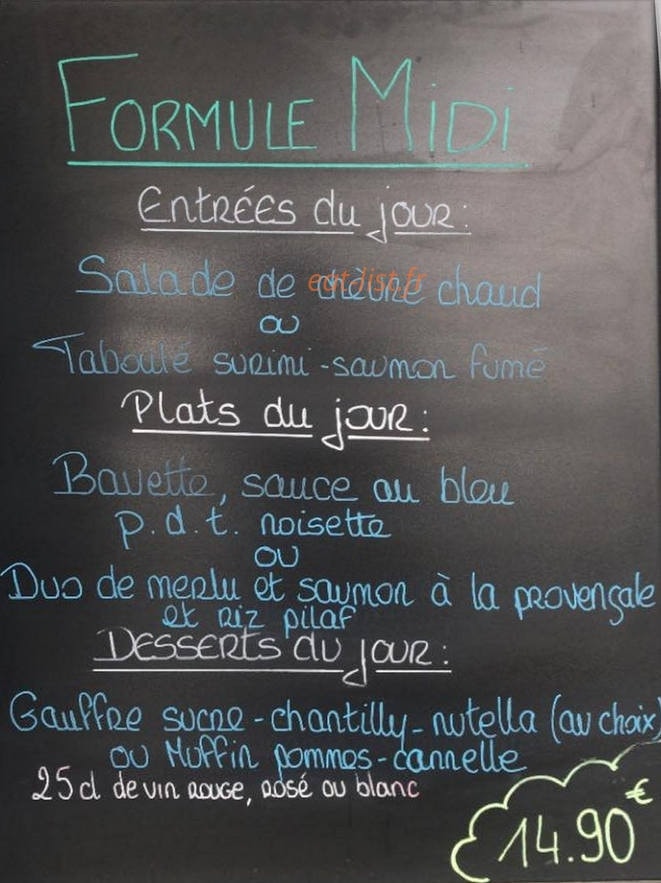 FORMULE MIDI
Entrées du jour :
Salade de chèvre chaud
ou
Taboulé surimi - saumon fumé
Plats du jour :
Bavette, sauce au bleu
p.d.t. noisette
ou
Duo de merlu et saumon à la provençale
et riz pilaf
Desserts du jour :
Gauffre sucre - chantilly - nutella (au choix)
ou Muffin pommes - cannelle
25cl de vin rouge, rosé ou blanc
14.90€